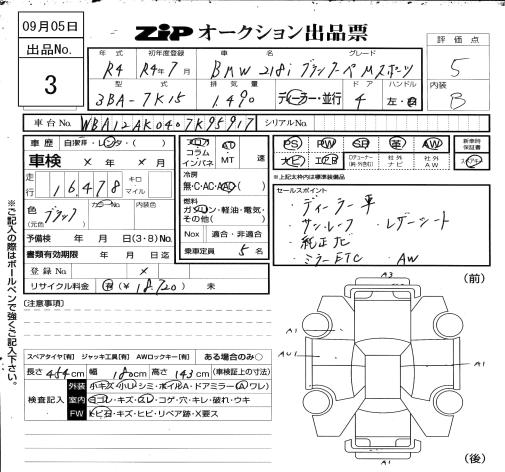 09月05日
出品No.
3
ZIP オークション出品票
年式 初年度登録 車名 グレード
R4 R4年7月 BMW 218i グランクーペ Mスポーツ
型式 排気量 ドア ハンドル
3BA-7K15 1,490 ディーラー・並行 4 左・右
評価点
5
内装
B
車台No. WBA12AK0407K95917 シリアルNo.
車歴 自家用・レンタ・( )
車検 × 年 × 月
走行 16,478 キロ マイル
色 (元色) ブラック カラーNo. 内装色
予備検 年 月 日(3・8)No.
書類有効期限 年 月 日迄
登録No. ×
リサイクル料金 有(¥18,720) 未
フロア コラム インパネ
AT・MT 速
冷房
無・C・AC・AAC・( )
燃料
ガソリン・軽油・電気・その他( )
Nox 適合・非適合
乗車定員 5 名
PS PW SR 革 AW
ナビ エアB Dチューナー(純・外別含む) 社外ナビ 社外AW
新車時保証書
スペアキー
※上記太枠内は標準装備品
セールスポイント
・ディーラー車
・サンルーフ ・レザーシート
・純正ナビ
・ミラーETC ・AW
(注意事項)
スペアタイヤ[有] ジャッキ工具[有] AWロックキー[有] ある場合のみ○
長さ 454cm 幅 180cm 高さ 143cm (車検証上の寸法)
検査記入
外装 小キズ・小U・シミ・ボイルA・ドアミラー(A・ワレ)
室内 ヨゴレ・キズ・スレ・コゲ・穴・キレ・破れ・ウキ
FW トビ石・キズ・ヒビ・リペア跡・X要ス
※ご記入の際はボールペンで強くご記入下さい。
(前)
A3
A1
AU1
A1
A1
(後)